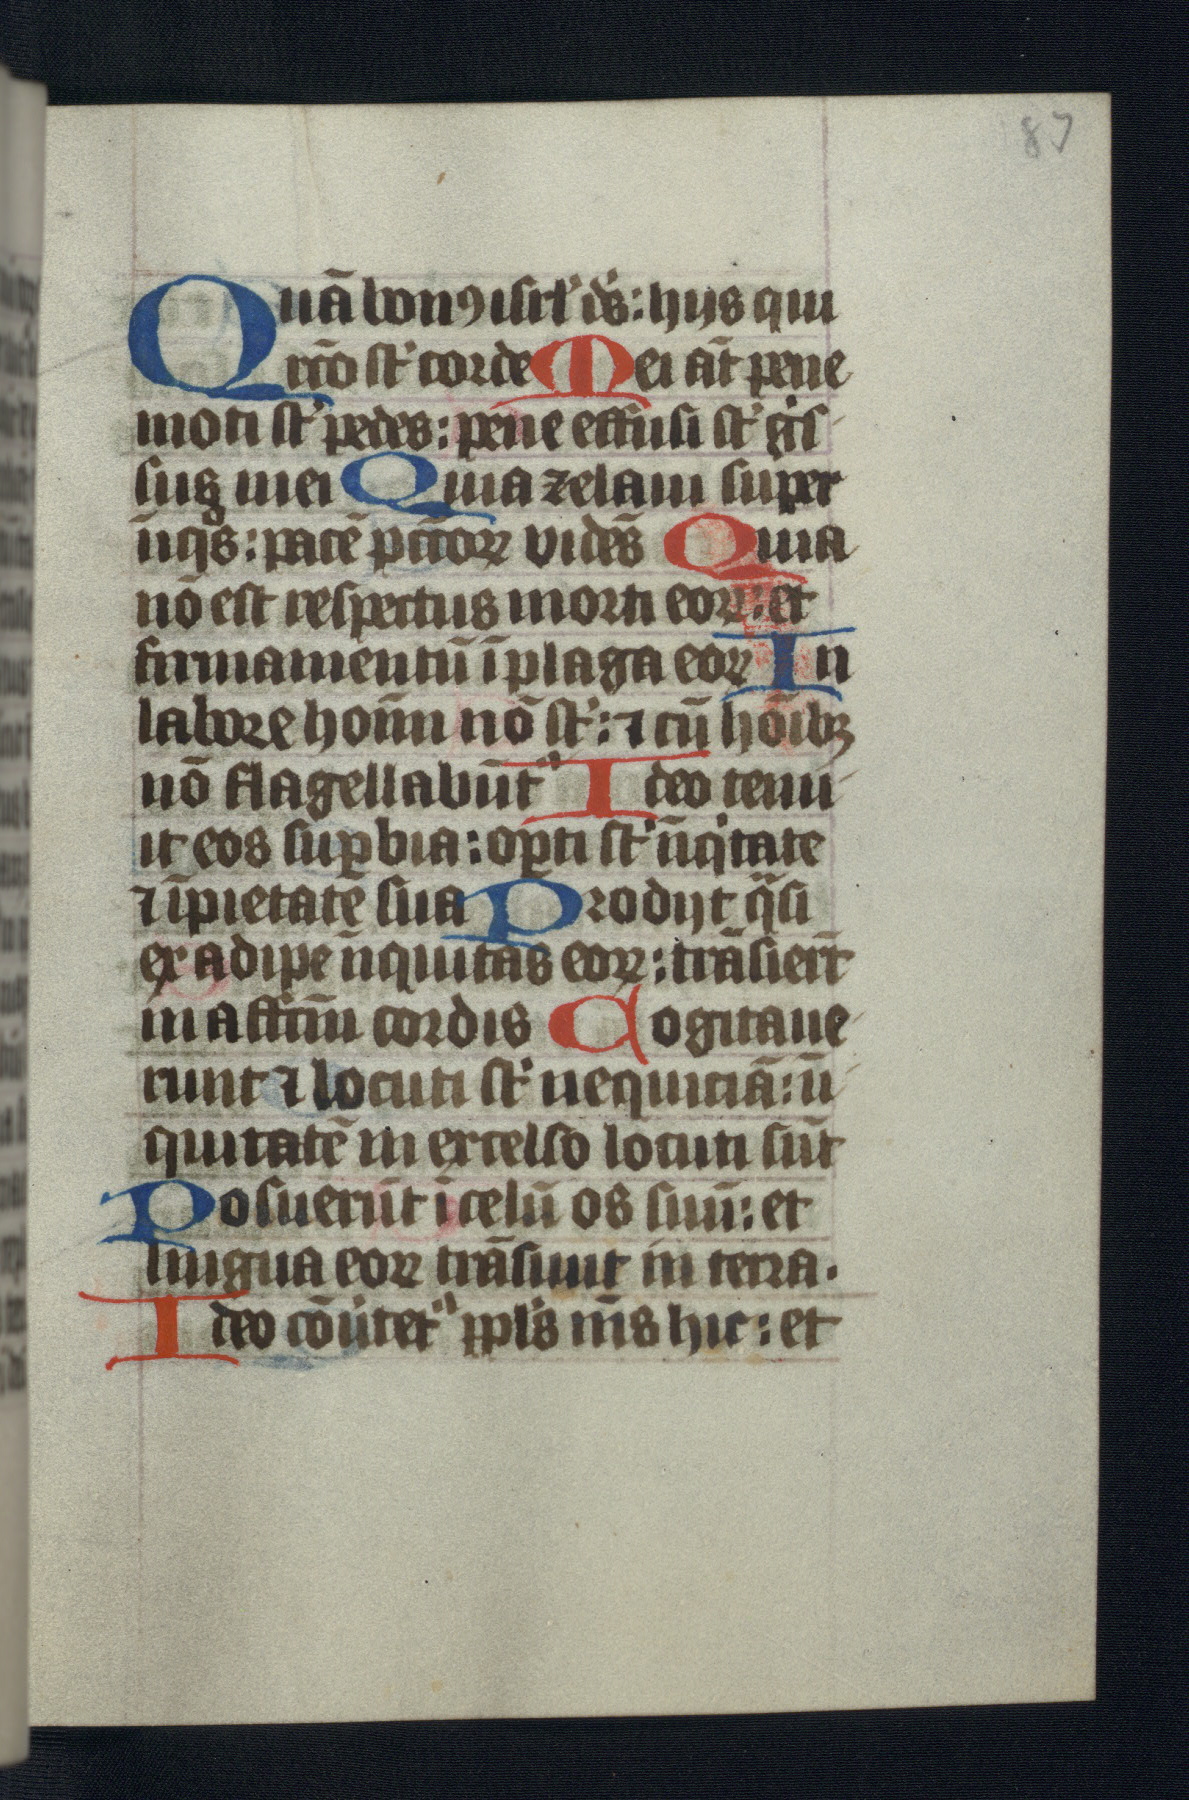 87
Quā bonꝯ isrl' ds̄: hijs qui
rc̄to st' corde Mei āt pene
moti st' pedes: pene effusi st' gīs
suꝫ mei Quia zelaui super
iniqͦs: pacē pctōꝝ vidēs Quia
nō est respectus morti eoꝝ: et
firmamentū ī plaga eoꝝ In
labore hoīm nō st': ⁊ cū hoībꝫ
nō flagellabūt' Ideo tenu
it eos suꝑbia: oꝑti st' īiqͥtate
⁊ īpietate sua Prodijt qͣsi
ex adipe īiquitas eoꝝ: trāsierūt
in affcm̄ cordis Cogitaue
runt ⁊ locuti st' nequiciā: īi
quitatē in excelso locuti sūt
Posuerūt ī celū os suū: et
lingua eoꝝ trāsiuit in terra.
Ideo cōūtet' ppl's m̄s hic: et